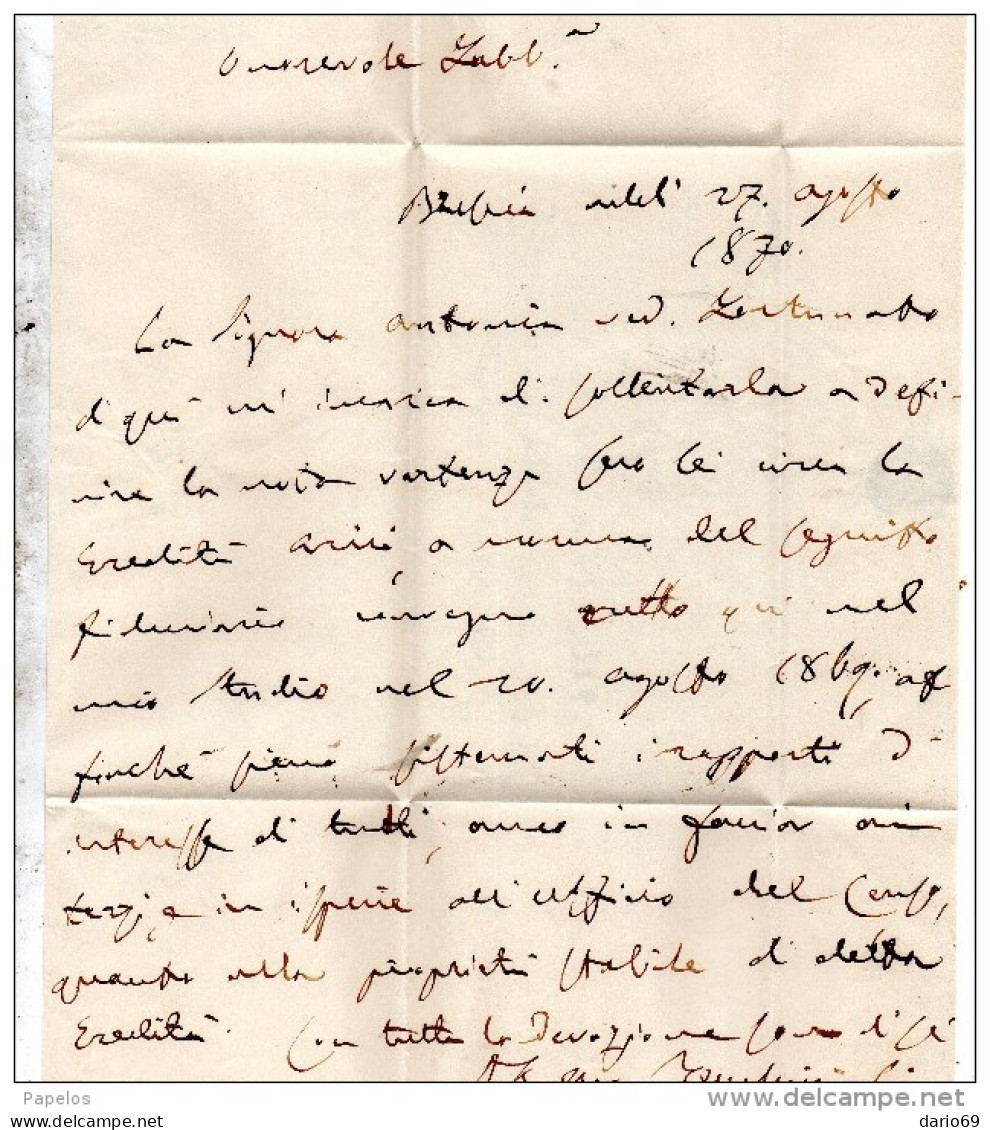 Onorevole Fabb.a
Brescia addì 27. agosto
1870.
La Signora Antonia ved. Fortunato
di quì m'incarica di sollecitarla a defi-
nire la nota vertenza fra lei circa la
Eredità a norma del seguito
fiduciario convegno fatto qui nel
mio Studio nel 20. agosto 1869. af
finchè siano sistemati i rapporti d'
interesse di tutti, anco in faccia ai
terzi, e in ispecie all'Uffizio del Censo,
quanto alla proprietà stabile di detta
Eredità. Con tutta la Devozione sono di
Papelos
delcampe.net
dario69